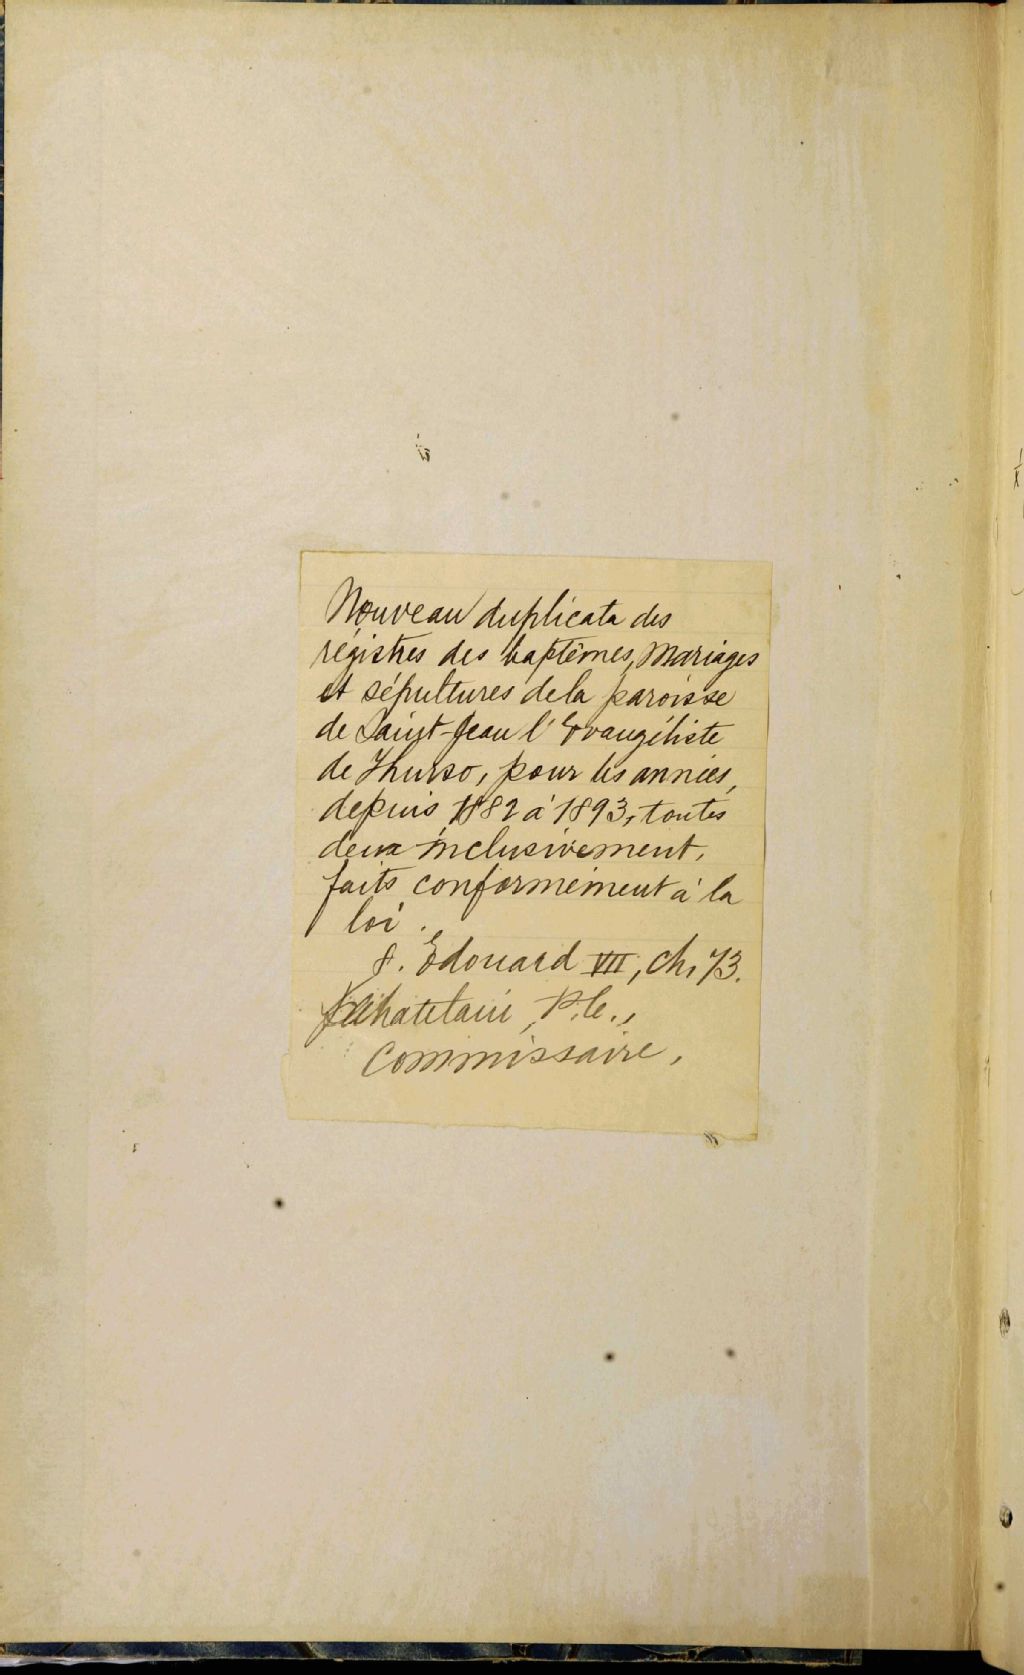 Nouveau duplicata des
régistres des baptêmes, Mariages
et sépultures de la paroisse
de Saint-Jean l'Evangéliste
de Thurso, pour les années,
depuis 1882 à 1893, toutes
deux inclusivement,
faits conformément à la
loi.
8. Edouard VII, ch. 73.
Chatelain, P.C.,
Commissaire,